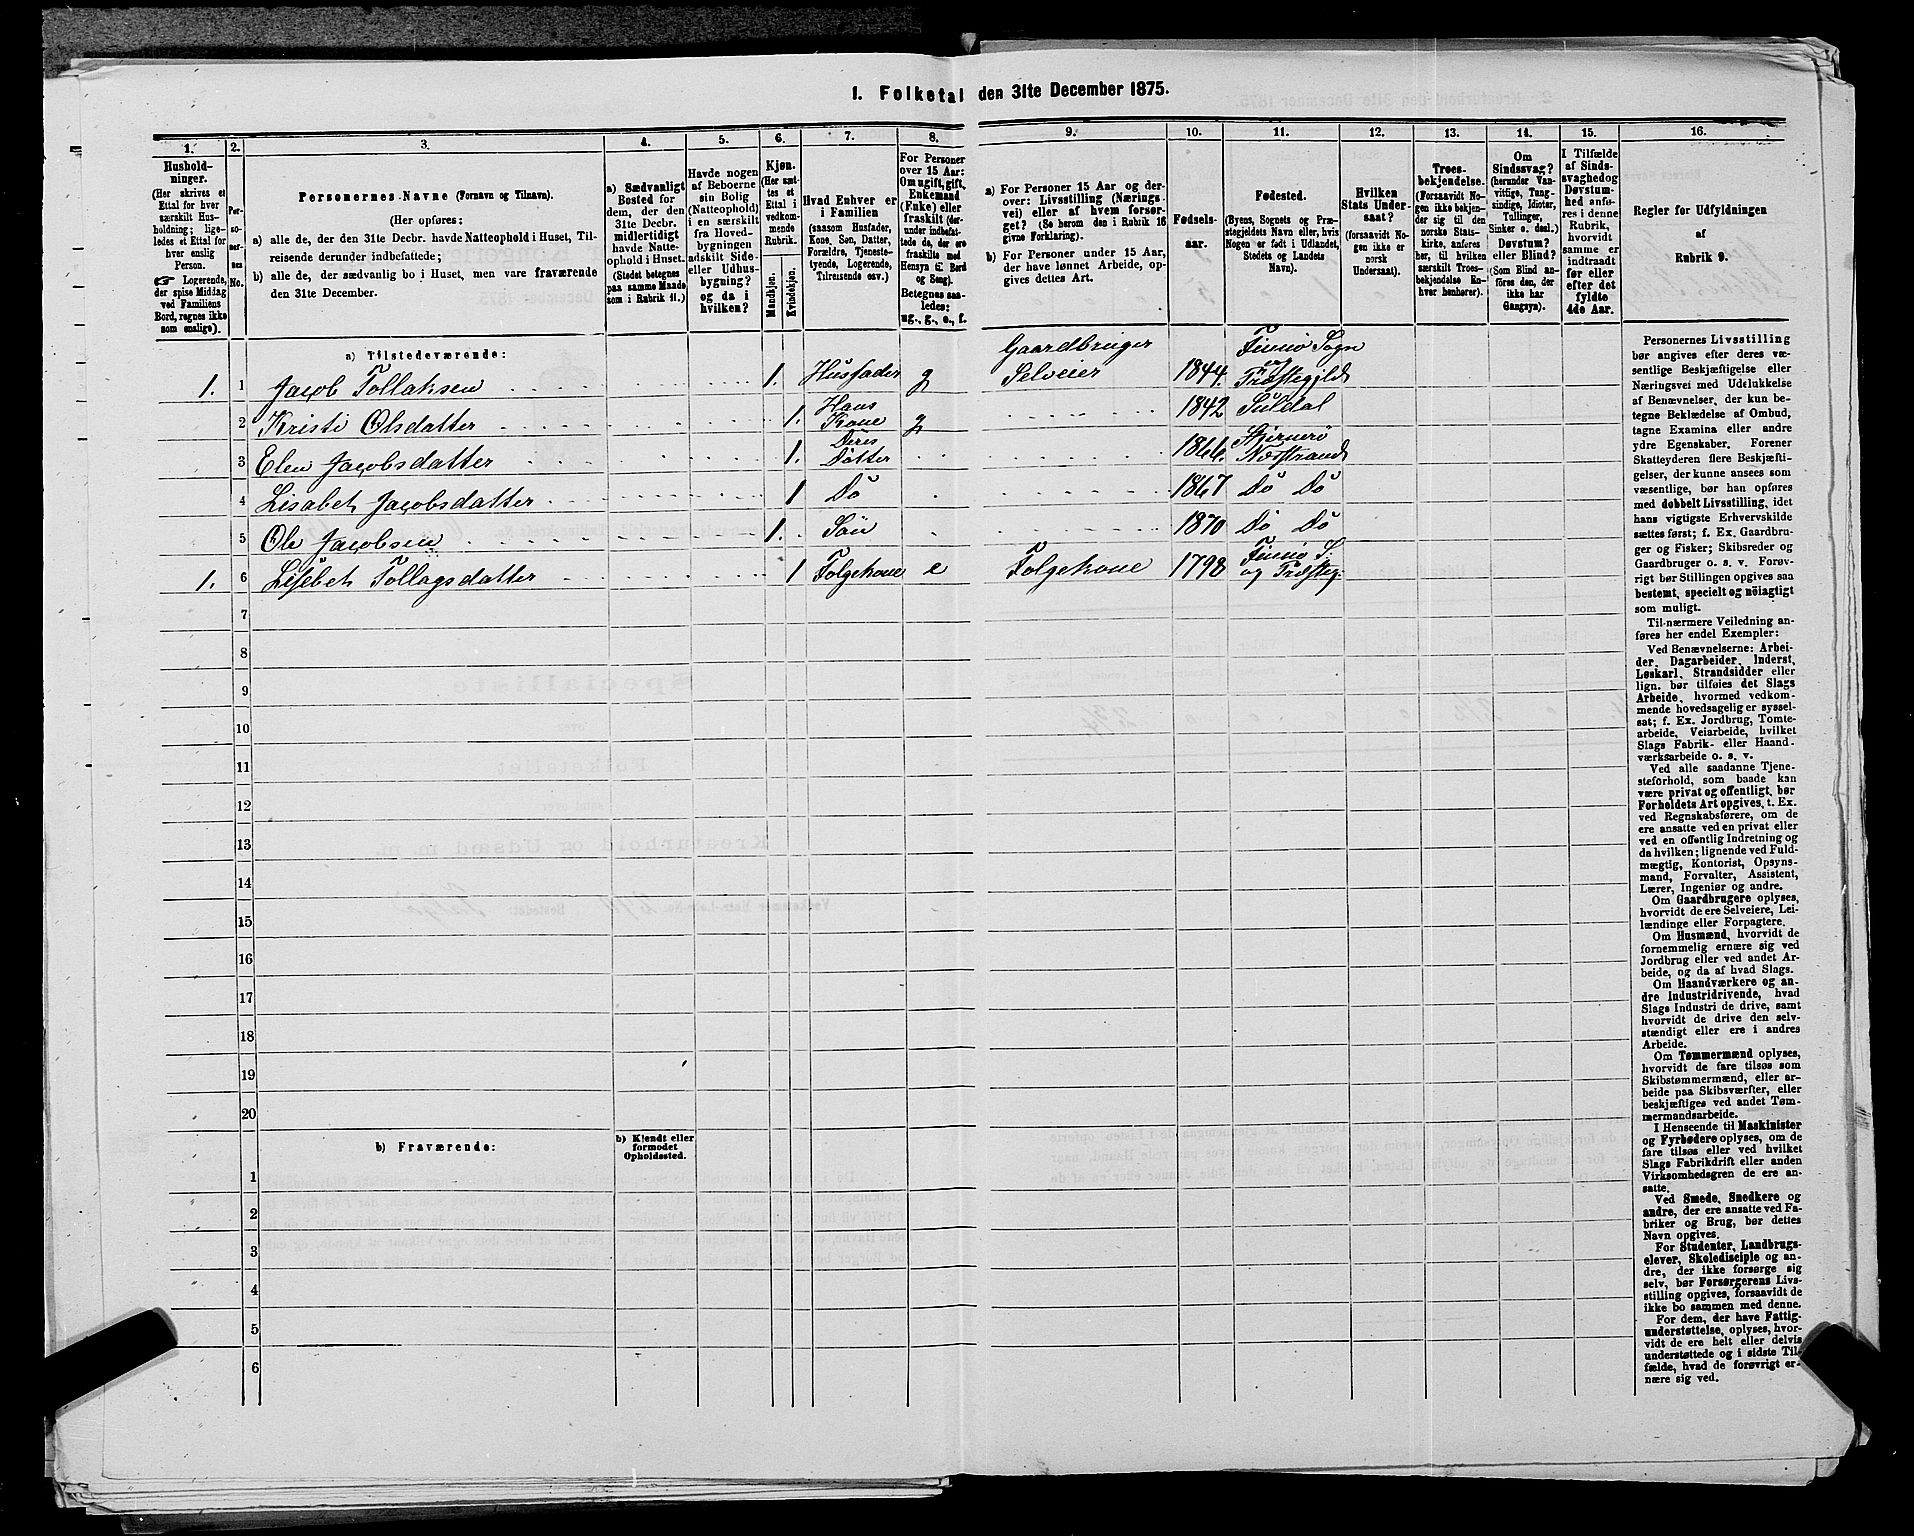 1. Folketal den 31te December 1875.
1. 2. 3. 4. 5. 6. 7. 8. 9. 10. 11. 12. 13. 14. 15. 16.
Hushold-
ninger.
(Her skrives et
Ettal for hver
særskilt Hus-
holdning; lige-
ledes et Ettal for
hver enslig
Person.
☞ Logerende,
der spise Middag
ved Familiens
Bord, regnes ikke
som enslige).
Per-
so-
ner-
nes
No.
Personernes Navne (Fornavn og Tilnavn).
(Her opføres:
a) alle de, der den 31te Decbr. havde Natteophold i Huset, Til-
reisende derunder indbefattede;
b) alle de, der sædvanlig bo i Huset, men vare fraværende
den 31te December.
a) Sædvanligt
Bosted for
dem, der den
31te Decbr.
midlertidigt
havde Natte-
ophold i Huset.
(Stedet betegnes
paa samme Maade
som i Rubrik 11.)
Havde nogen
af Beboerne
sin Bolig
(Natteophold)
i en særskilt
fra Hoved-
bygningen
adskilt Side-
eller Udhus-
bygning?
og da i
hvilken?
Kjøn.
(Her sæt-
tes et
Ettal i
vedkom-
mende
Rubrik.
Mandkjøn.
Kvindekjøn.
Hvad Enhver er
i Familien
(saasom Husfader,
Kone, Søn, Datter,
Forældre, Tjeneste-
tyende, Logerende,
Tilreisende osv.)
For Personer
over 15 Aar:
Om ugift, gift,
Enkemand
(Enke) eller
fraskilt (der-
under indbefat-
tede de, der ere
fraskilte med
Hensyn til Bord
og Seng).
Betegnes saa-
ledes:
ug., g., e., f.
a) For Personer 15 Aar og der-
over: Livsstilling (Nærings-
vei) eller af hvem forsør-
get? (Se herom den i Rubrik 16
givne Forklaring).
b) For Personer under 15 Aar,
der have lønnet Arbeide, op-
gives dettes Art.
Fødsels-
aar.
Fødested.
(Byens, Sognets og Præ-
stegjeldets Navn eller, hvis
Nogen er født i Udlandet,
Stedets og Landets
Navn).
Hvilken
Stats Under-
saat?
(forsaavidt No-
gen ikke er
norsk
Undersaat).
Troes-
bekjendelse.
(Forsaavidt No-
gen ikke bekjen-
der sig til den
norske Stats-
kirke, anføres
her, til hvilken
særskilt Troes-
bekjendelse En-
hver henhører).
Om
Sindssvag?
(herunder Van-
vittige, Tung-
sindige, Idioter,
Tullinger,
Sinker o. desl.)
Døvstum?
eller Blind?
(Som Blind an-
føres den, der
ikke har
Gangsyn).
I Tilfælde
af Sinds-
svaghed og
Døvstum-
hed anfø-
res i denne
Rubrik,
hvorvidt
samme er
indtraadt
før eller
efter det
fyldte
4de Aar.
Regler for Udfyldningen
af
Rubrik 9.
a) Tilstedeværende:
1. 1 Jacob Tollaksen 1. Husfader g Gaardbruger Selveier 1844. Finnø Sogn og Præstegjeld
2 Kristi Olsdatter 1. Hans Kone g 1842 Suldal
3 Elen Jacobsdatter 1. Deres Datter 1866. Stjernerø Næsstrand
4 Lisabet Jacobsdatter 1 Do 1867 Do Do
5 Ole Jacobsen 1. Søn 1870 Do Do
1. 6 Lisebet Tollagsdatter 1 Folgekone e Folgekone 1798 Finnø S. og Præsteg.
7
8
9
10
11
12
13
14
15
16
17
18
19
20
b) Fraværende:
b) Kjendt eller
formodet
Opholdssted.
1
2
3
4
5
6
Personernes Livsstilling
bør angives efter deres væ-
sentlige Beskjæftigelse eller
Næringsvei med Udelukkelse
af Benævnelser, der kun be-
tegne Beklædelse af Ombud,
tagne Examina eller andre
ydre Egenskaber. Forener
Skatteyderen flere Beskjæfti-
gelser, der kunne ansees som
væsentlige, bør han opføres
med dobbelt Livsstilling, idet
hans vigtigste Erhvervskilde
sættes først; f. Ex. Gaardbru-
ger og Fisker; Skibsreder og
Gaardbruger o. s. v. Forøv-
rigt bør Stillingen opgives saa
bestemt, specielt og nöiagtigt
som muligt.
Til nærmere Veiledning an-
føres her endel Exempler:
Ved Benævnelserne: Arbei-
der, Dagarbeider, Inderst,
Løskarl, Strandsidder eller
lign. bør tilføies det Slags
Arbeide, hvormed vedkom-
mende hovedsagelig er syssel-
sat; f. Ex. Jordbrug, Tomte-
arbeide, Veiarbeide, hvilket
Slags Fabrik- eller Haand-
værksarbeide o. s. v.
Ved alle saadanne Tjene-
steforhold, som baade kan
være privat og offentligt, bør
Forholdets Art opgives, t. Ex.
ved Regnskabsførere, om de
ere ansatte ved en privat eller
ved en offentlig Indretning og
da hvilken; lignende ved Fuld-
mægtig, Kontorist, Opsyns-
mand, Forvalter, Assistent,
Lærer, Ingeniør og andre.
Om Gaardbrugere oplyses,
hvorvidt de ere Selveiere, Lei-
lændinge eller Forpagtere.
Om Husmænd, hvorvidt de
fornemmelig ernære sig ved
Jordbrug eller ved andet Ar-
beide, og da af hvad Slags.
Om Haandværkere og an-
dre Industridrivende, hvad
Slags Industri de drive, samt
hvorvidt de drive den selv-
stændigt eller ere i andres
Arbeide.
Om Tømmermænd oplyses,
hvorvidt de fare tilsøs som
Skibstømmermænd, eller ar-
beide paa Skibsværfter, eller
beskjæftiges ved andet Tøm-
mermandsarbeide.
I Henseende til Maskinister
og Fyrbødere oplyses, om de
fare tilsøs eller ved hvilket
Slags Fabrikdrift eller anden
Virksomhedsgren de ere an-
satte.
Ved Smede, Snedkere og
andre, der ere ansatte ved Fa-
briker og Brug, bør dettes
Navn opgives.
For Studenter, Landbrugs-
elever, Skoledisciple og an-
dre, der ikke forsørge sig
selv, bør Forsørgerens Livs-
stilling opgives, forsaavidt de
ikke bo sammen med denne.
For dem, der have Fattig-
understøttelse, oplyses, hvor-
vidt de ere helt eller delvis
understøttede og i sidste Til-
fælde, hvad de forøvrigt er-
nære sig ved.